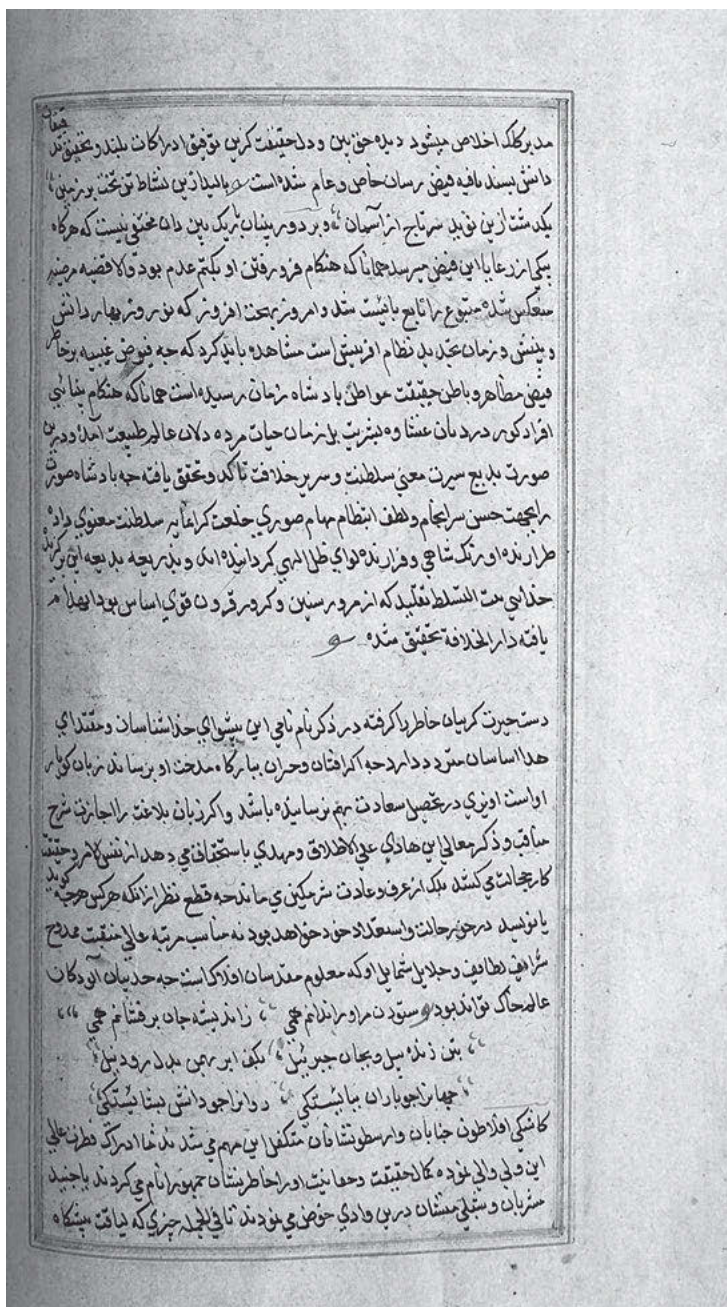 مدبر کلک اخلاص میشود دیده حق بین و دل حقیقت گزین توفیق ادراکات بلند و تحقیق
دانش پسند مایه فیض رسان خاص و عام شده است بالید ازین نشاط تن تخت بر زمین
بگذشت ازین نوید سر تاج از آسمان و بر دوربینان باریک بین دان مخفی نیست که هرگاه
یکی از رعایا این فیض میرسد همانا که هنگام فرو رفتن او بکتم عدم بود والا قضیه مرضیه
منعکس شده متبوع را تابع بایست شد و امروز بهجت افروز که نوروز بهار دانش
و بینش و زمان تجدید نظام آفرینش است مشاهده باید کرد که چه فیوض غیبیه بر خاطر
فیض مظاهر و باطن حقیقت مواطن پادشاه زمان رسیده است همانا که هنگام بینائی
افراد کور دردمان عنا و بشریت بل زمان حیات مرده دلان عالم طبیعت آمد و درین
صورت بدیع سیرت معنی سلطنت و سریر خلافت تأکد و تحقق یافته چه پادشاه صورت
را بجهت حسن سرانجام و لطف انتظام مهام صوری خلعت گرانمایه سلطنت معنوی داده
طرازنده اورنگ شاهی و فرازنده لوای ظل الهی گردانیده اند و بذریعه بدیعه این برگزیده
خدایی بیت التسلط تقلید که از مرور سنین و کرور قرون قوی اساس بود انهدام
یافته دارالخلافة تحقیق شده
دست حیرت گریبان خاطر را گرفته در ذکر نام نامی این پیشوای خداشناسان و مقتدای
هدا اساسان متردد دارد چه اگر افتان و خیزان ببارگاه مدحت او برساند زبان کو تا
او است اویزی در تحصیل سعادت بهم نرسانیده باشد و اگر زبان بلاغت را اجازت شرح
مناقب و ذکر معالی این هادی علی الاطلاق و مهدی باستحقاق می دهد از نفس الامر و حقیقت
کار خجالت می کشد بلک از عرف و عادت شرمگین می ماند چه قطع نظر از آنکه هرکس هر چه گوید
یا نویسد در خور حالت و استعداد خود خواهد بود نه مناسب مرتبه عالی منقبت ممدوح
شرایف لطایف و جلایل شمایل او که معلوم مقدسان افلاک است چه حد بیان آلودگان
عالم خاک تواند بود ستودن مر او را ندانم همی ز اندیشه جان برفشانم همی
بتن زنده پیل و بجان جبرئیل بکف ابر بهمن بدل رود نیل
جهانرا جو باران ببایستگی روانرا جو دانش بشایستگی
کاشکی افلاطون جنابان و ارسطو نشانان متکفل این مهم می شدند تا ادراک فطرت عالی
این ولی والی نموده کمال حقیقت و حقانیت او را خاطرنشان جمهور انام می کردند یا جنید
مشربان و شبلی منشان درین وادی خوض می نمودند تا فی الجمله چیزی که لیاقت پیشگاه